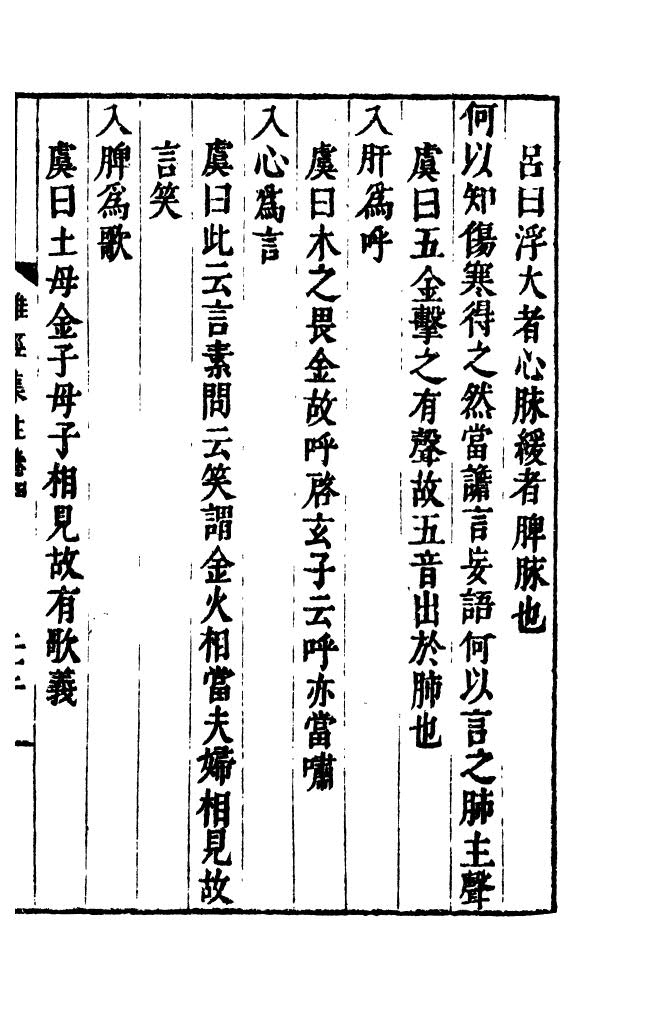 呂曰浮大者心脉緩者脾脉也
何以知傷寒得之然當譫言妄語何以言之肺主聲
虞曰五金擊之有聲故五音出於肺也
入肝爲呼
虞曰木之畏金故呼啓玄子云呼亦當嘯
入心爲言
虞曰此云言素問云笑謂金火相當夫婦相見故
言笑
入脾爲歌
虞曰土母金子母子相見故有歌義
難經集注卷四